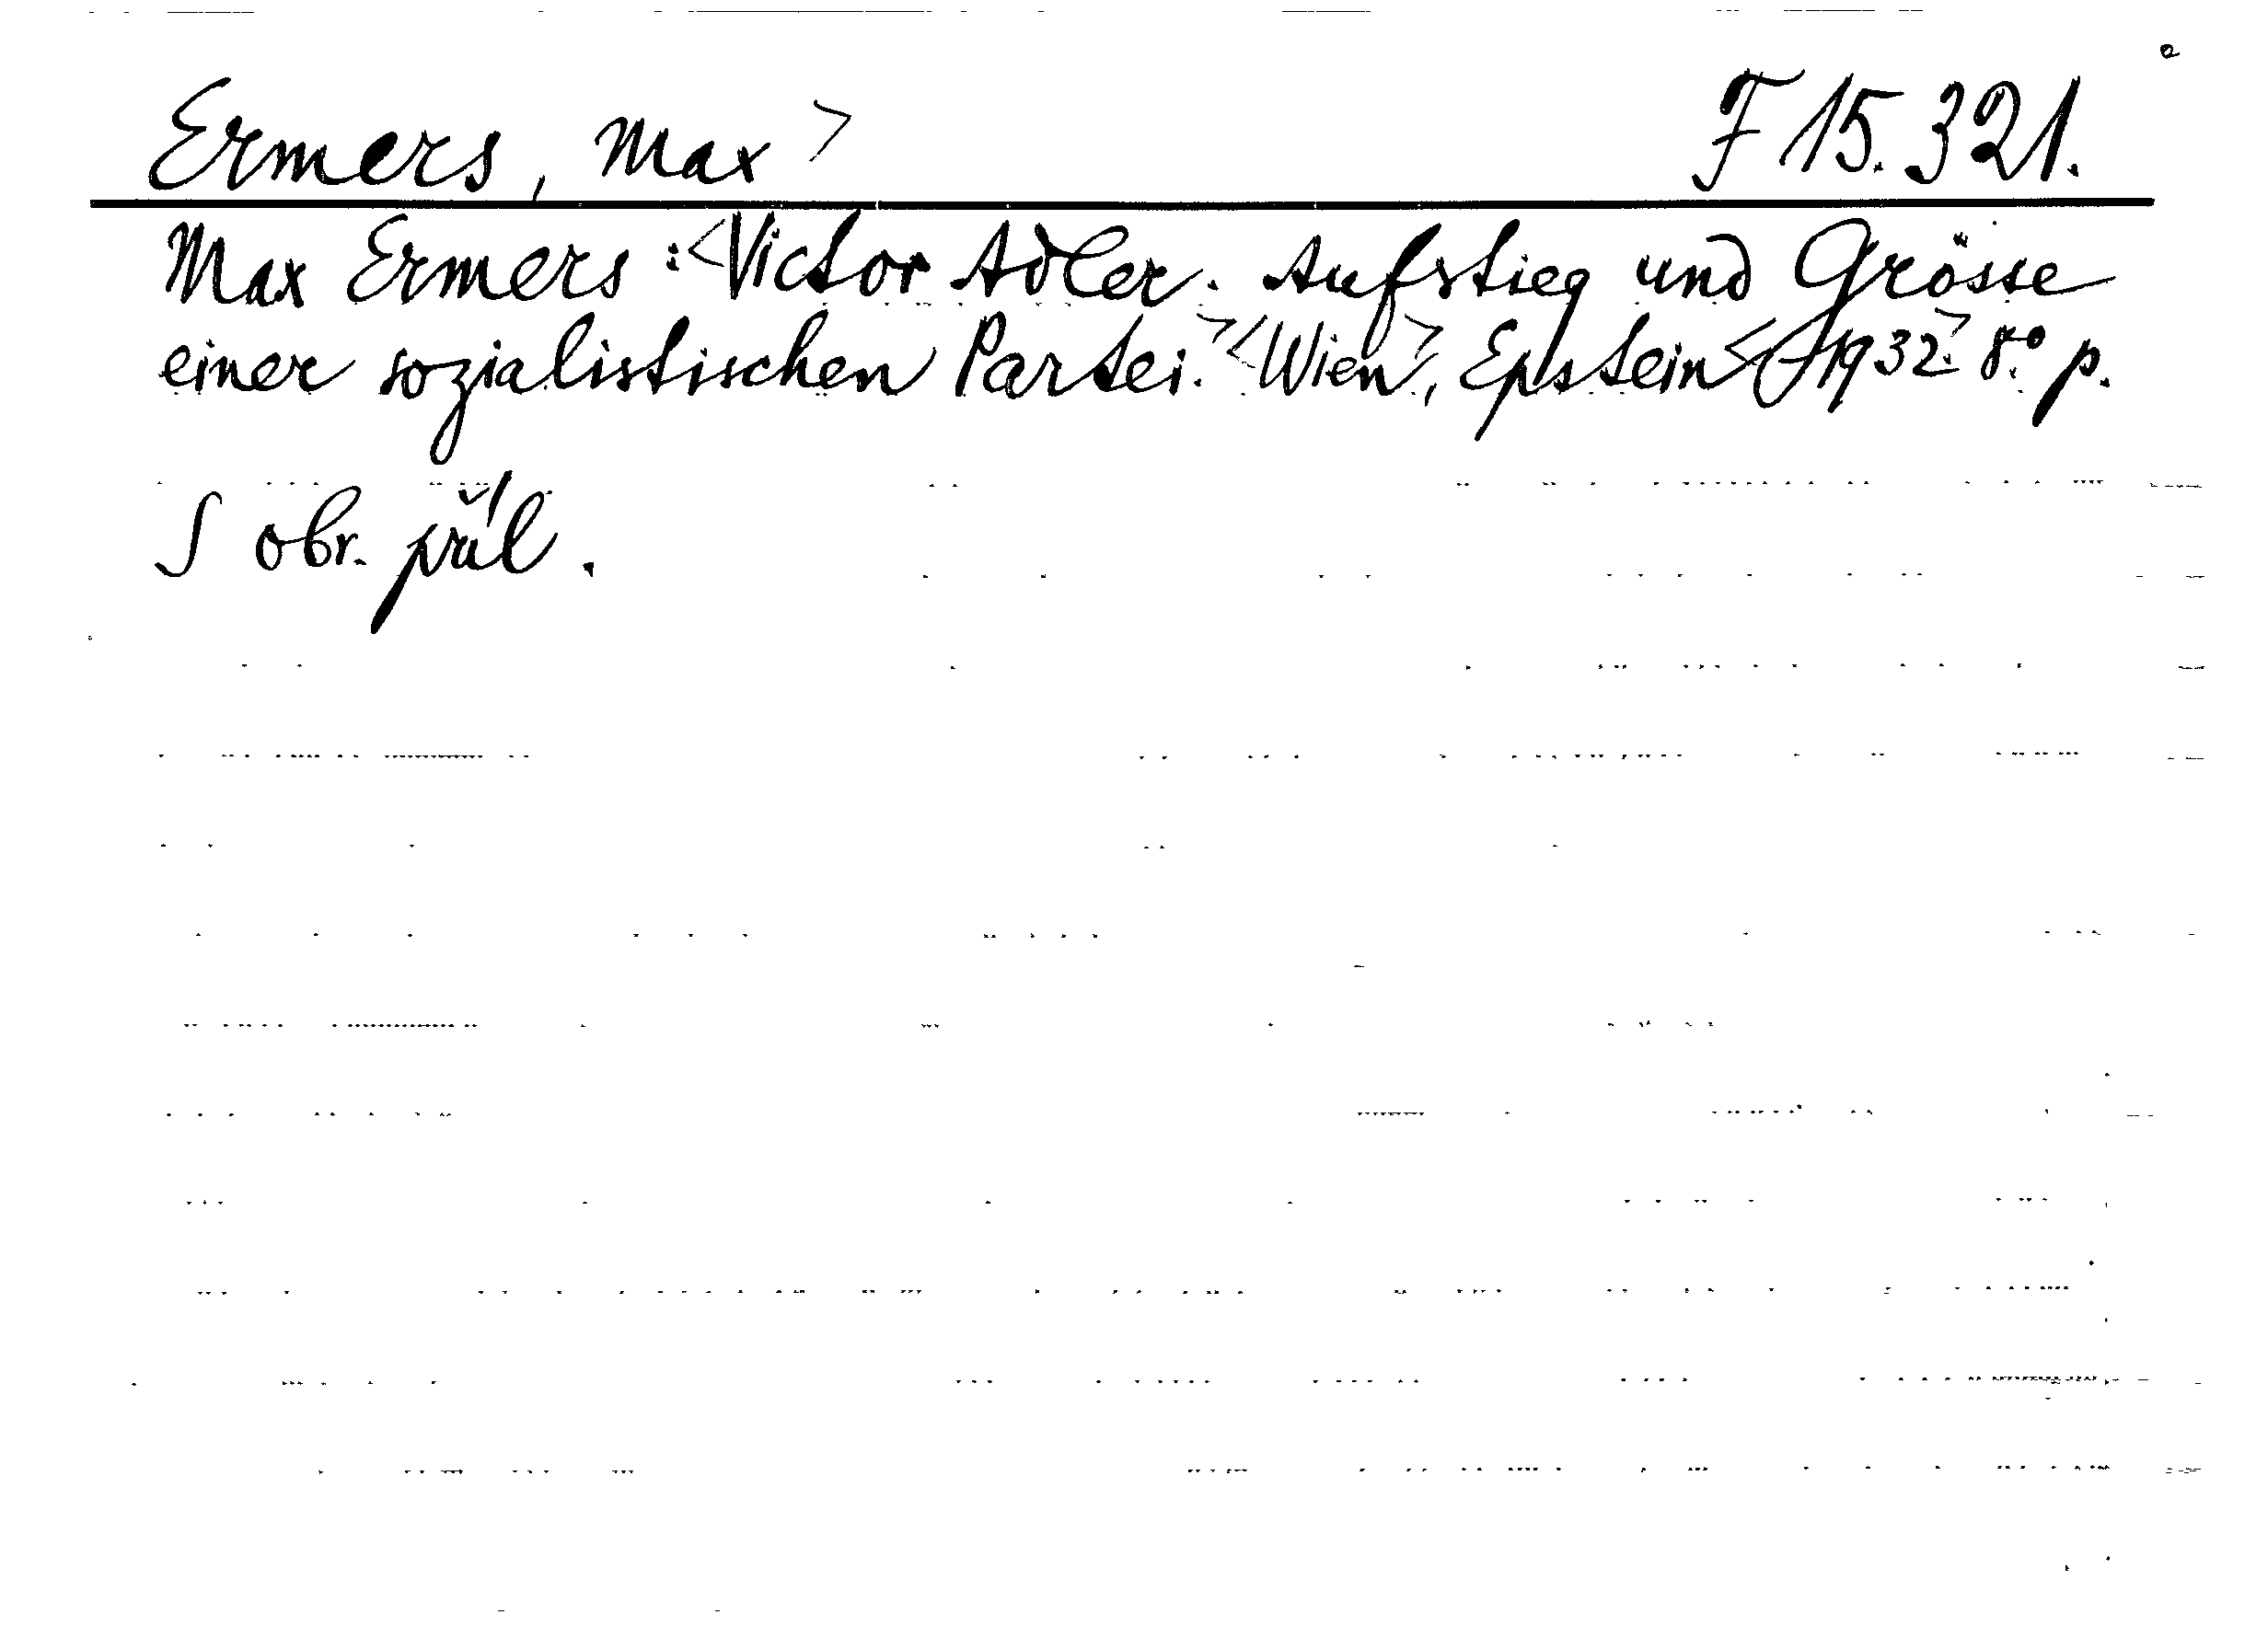 Ermers, Max > F 15.321.
Max Ermers :<Victor Adler. Aufstieg und Grösse
einer sozialistischen Partei.><Wien>, Epstein <1932.> 8.° p.
S obr. příl.